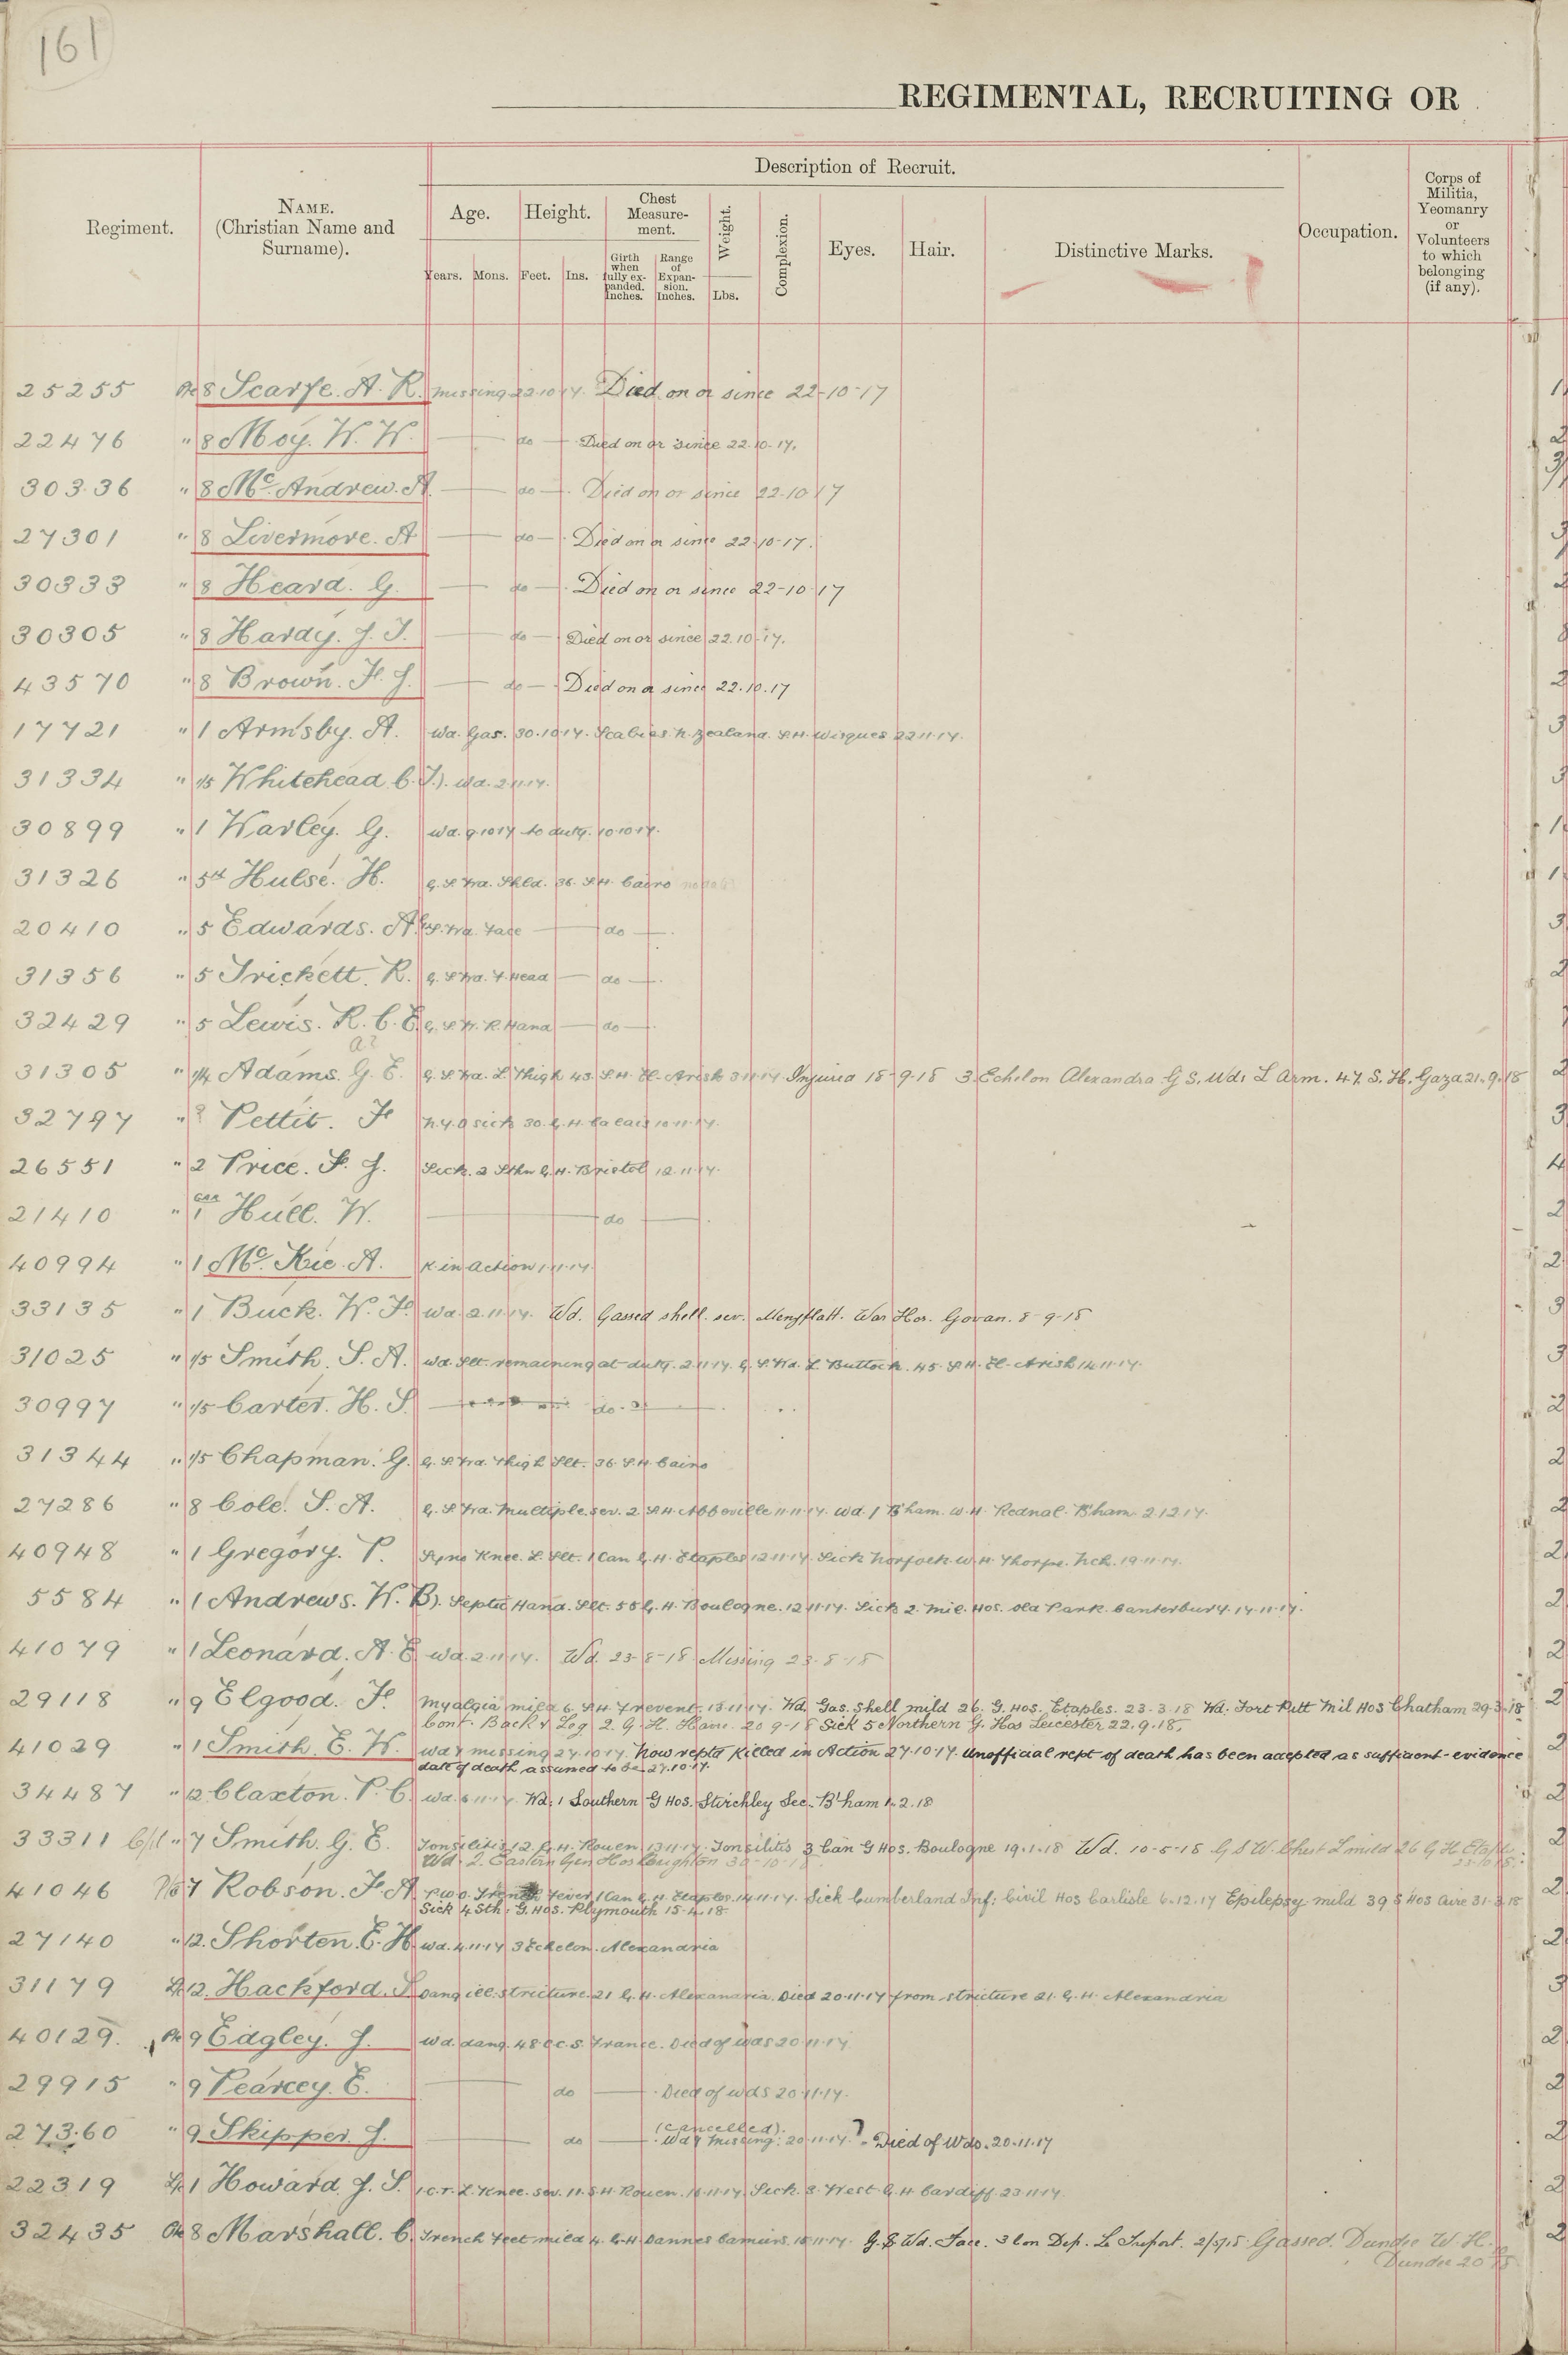 161
REGIMENTAL, RECRUITING OR
Description of Recruit.
Regiment.
NAME.
(Christian Name and
Surname).
Age.
Height.
Chest
Measure-
ment.
Weight.
Complexion.
Eyes.
Hair.
Distinctive Marks.
Occupation.
Corps of
Militia,
Yeomanry
or
Volunteers
to which
belonging
(if any).
Years.
Mons.
Feet.
Ins.
Girth
when
fully ex-
panded.
Inches.
Range
of
Expan-
sion.
Inches.
Lbs.
25255 Pte 8 Scarfe. A. R. missing 22.10.17. Died on or since 22-10-17
22476 " 8 Moy. W. W. do Died on or since 22.10.17.
30336 " 8 Mc Andrew. A. do Died on or since 22-10-17
27301 " 8 Livermore. A do Died on or since 22-10-17.
30333 " 8 Heard. G. do Died on or since 22-10-17
30305 " 8 Hardy. J. J. do Died on or since 22.10.17.
43570 " 8 Brown. F. J. do Died on or since 22.10.17
17721 " 1 Armsby. A. wd. Gas. 30.10.17. Scabies N. Zealand. S.H. Wisques 22.11.17.
31334 " 1/5 Whitehead C. J.). wd. 2.11.17.
30899 " 1 Warley. G. wd. 9.10.17 to duty. 10.10.17.
31326 " 5th Hulse. H. G. S. Wd. Shld. 36. S.H. Cairo
20410 " 5 Edwards. A. G. S. Wd. Face do
31356 " 5 Trickett. R. G. S. Wd. F. Head do
32429 " 5 Lewis. R. C. E. G. S. W. R. Hand do
a?
31305 " 1/4 Adams. G. E. G. S. Wd. L. Thigh 43. S.H. El-Arish 3.11.17 Injured 18-9-18 3. Echelon Alexandra. G S. Wd. L Arm. 47. S. H. Gaza 21.9.18
32797 " ? Pettit. F N.Y.D sick 30. G. H. Calais 10.11.17.
26551 " 2 Price. F. J. Sick. 2 Sthn G. H. Bristol 12.11.17.
21410 " Gar 1 Hull. W. do
40994 " 1 Mc. Kie. A. K in Action 1.11.17.
33135 " 1 Buck. W. F. wd. 2.11.17. Wd. Gassed shell. sev. Merryflatt. War Hos. Govan. 8-9-18
31025 " 1/5 Smith. S. A. wd. Slt. remaining at duty. 2.11.17. G. S. Wd. L. Buttock. 45. S.H. El-Arish 14.11.17.
30997 " 1/5 Carter. H. S. do
31344 " 1/5 Chapman. G. G. S. Wd. Thigh Slt. 36. S.H. Cairo
27286 " 8 Cole. S. A. G. S. Wd. Multiple. sev. 2. S.H. Abbeville 11.11.17. wd. 1 B'ham. W.H. Rednal. B'ham. 2.12.17.
40948 " 1 Gregory. P. Syno Knee. L. Slt. 1 Can G. H. Etaples 12.11.17. Sick Norfolk W. H. Thorpe. Nch. 19.11.17.
5584 " 1 Andrews. W. B). Septic Hand. Slt. 55 G. H. Boulogne. 12.11.17. Sick 2. Mil. Hos. Old Park. Canterbury. 17.11.17.
41079 " 1 Leonard. A. E. wd. 2.11.17. Wd. 23-8-18 Missing 23-8-18
29118 " 9 Elgood. F. Myalgia mild 6. S.H. Frevent. 13.11.17. Wd. Gas. Shell mild 26. G. Hos. Etaples. 23.3.18 Wd. Fort Pitt Mil Hos Chatham 29.3.18
Cont. Back & Leg 2. G. H. Havre. 20-9-18 Sick 5 Northern G. Hos Leicester 22.9.18.
41029 " 1 Smith. E. W. wd & missing 27.10.17. Now reptd Killed in Action 27.10.17. Unofficial rept of death has been accepted as sufficient-evidence
date of death assumed to be 27.10.17.
34487 " 12 Claxton. P. C. wd. 6.11.17 Wd: 1 Southern G Hos. Stirchley Sec. B'ham 1.2.18
33311 C/pl " 7 Smith. G. E. Tonsilitis 12. G. H. Rouen 13.11.17. Tonsilitis 3 Can G Hos. Boulogne 19.1.18 Wd. 10-5-18 G S W. Chest L mild 26 G H Etaples
Wd. 2. Eastern Gen Hos Brighton 30-10-18.
41046 7 Robson. F. A P.U.O. Trench Fever 1 Can G. H. Etaples. 14.11.17. Sick Cumberland Inf: Civil Hos Carlisle 6.12.17 Epilepsy mild 39 S Hos Aire 31.3.18
Sick 4 Sth: G. Hos. Plymouth 15.4.18
27140 " 12. Shorten. E. H. wd. 4.11.17 3 Echelon. Alexandria
31179 12. Hackford. dang ill. stricture. 21 G. H. Alexandria. Died 20.11.17 from stricture 21. G. H. Alexandria
40129. Pte 9 Eagley. J. wd. dang. 48 C.C.S. France. Died of wds 20.11.17
29915 " 9 Pearcey. E. do Died of wds 20.11.17.
27360 " 9 Skipper. J. do (cancelled). Wd & Missing. 20.11.17. ? Died of Wds. 20.11.17
22319 1 Howard. J. S. I.C.T. L. Knee. sev. 11. S.H. Rouen. 16.11.17. Sick. 3. West G. H. Cardiff. 23.11.17.
32435 Pte 8 Marshall. C. Trench Feet mild 4. G.H Dannes Camiers. 15.11.17. G. S. Wd. Face. 3 Con Dep. Le Treport. 2/5/18 Gassed. Dundee W. H.
Dundee 20